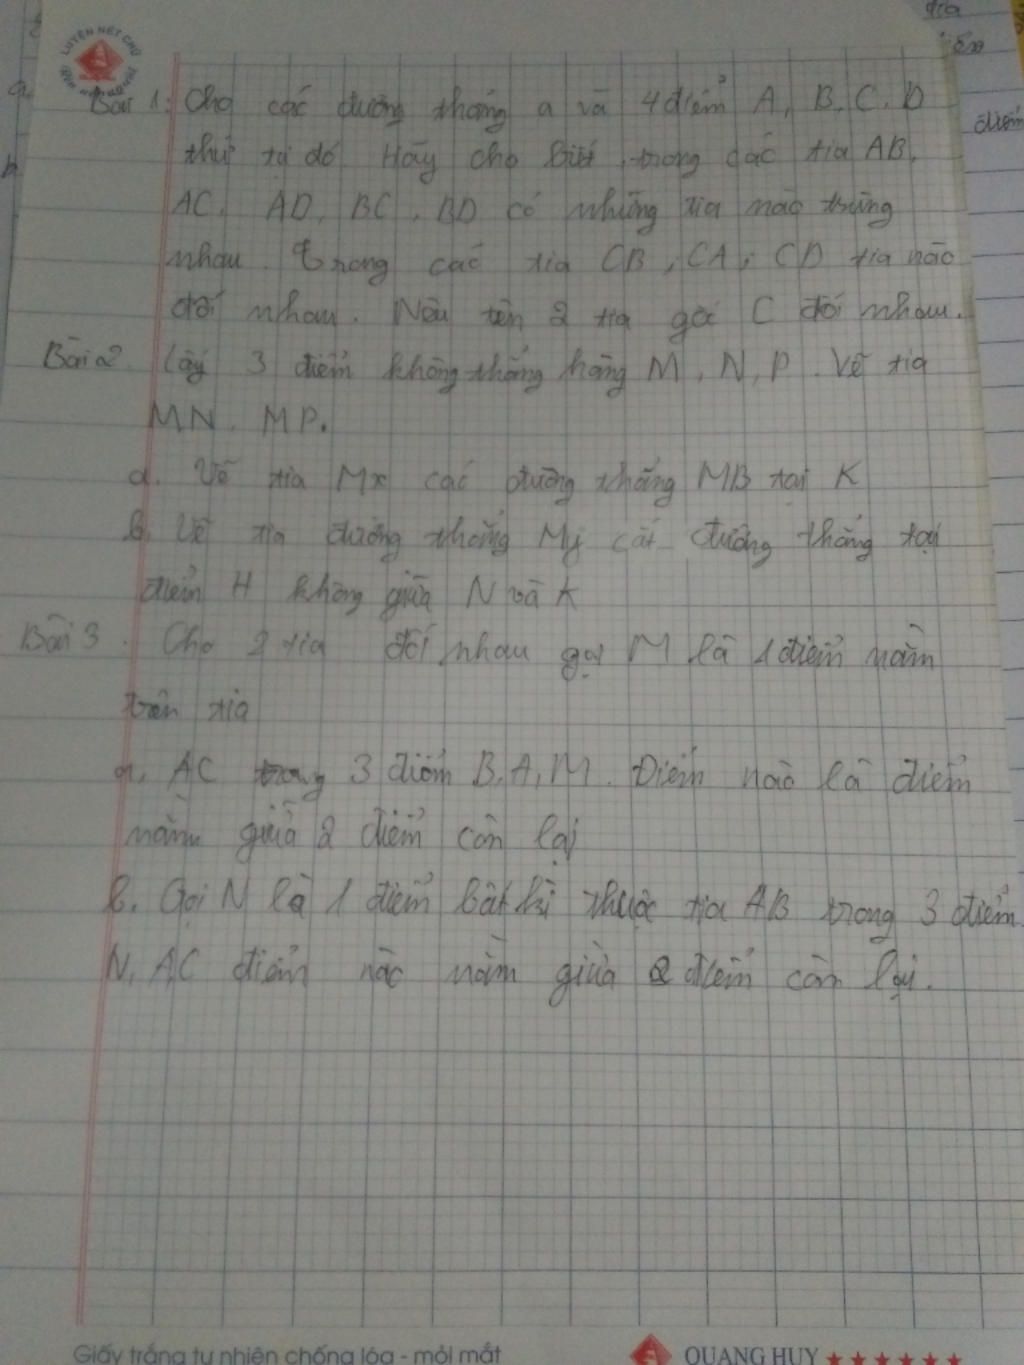 LUYỆN NÉT CHỮ
Bài 1: Cho các đường thẳng a và 4 điểm A, B, C, D
thứ tự đó Hãy cho biết trong các tia AB,
AC, AD, BC, BD có những tia nào trùng
nhau. Trong các tia CB, CA, CD tia nào
đối nhau. Nêu tên 2 tia gốc C đối nhau.
Bài 2. Lấy 3 điểm không thẳng hàng M, N, P. Vẽ tia
MN, MP.
a. Vẽ tia Mx các đường thẳng MB tại K
b. Vẽ tia đường thẳng My cắt đường thẳng tại
điểm H không giữa N và K
Bài 3. Cho 2 tia đối nhau gọi M là 1 điểm nằm
trên tia
a. AC trong 3 điểm B, A, M. Điểm nào là điểm
nằm giữa 2 điểm còn lại
b. Gọi N là 1 điểm bất kì thuộc tia AB trong 3 điểm
N, A, C điểm nào nằm giữa 2 điểm còn lại.
điểm
Giấy trắng tự nhiên chống lóa - mỏi mắt
QUANG HUY